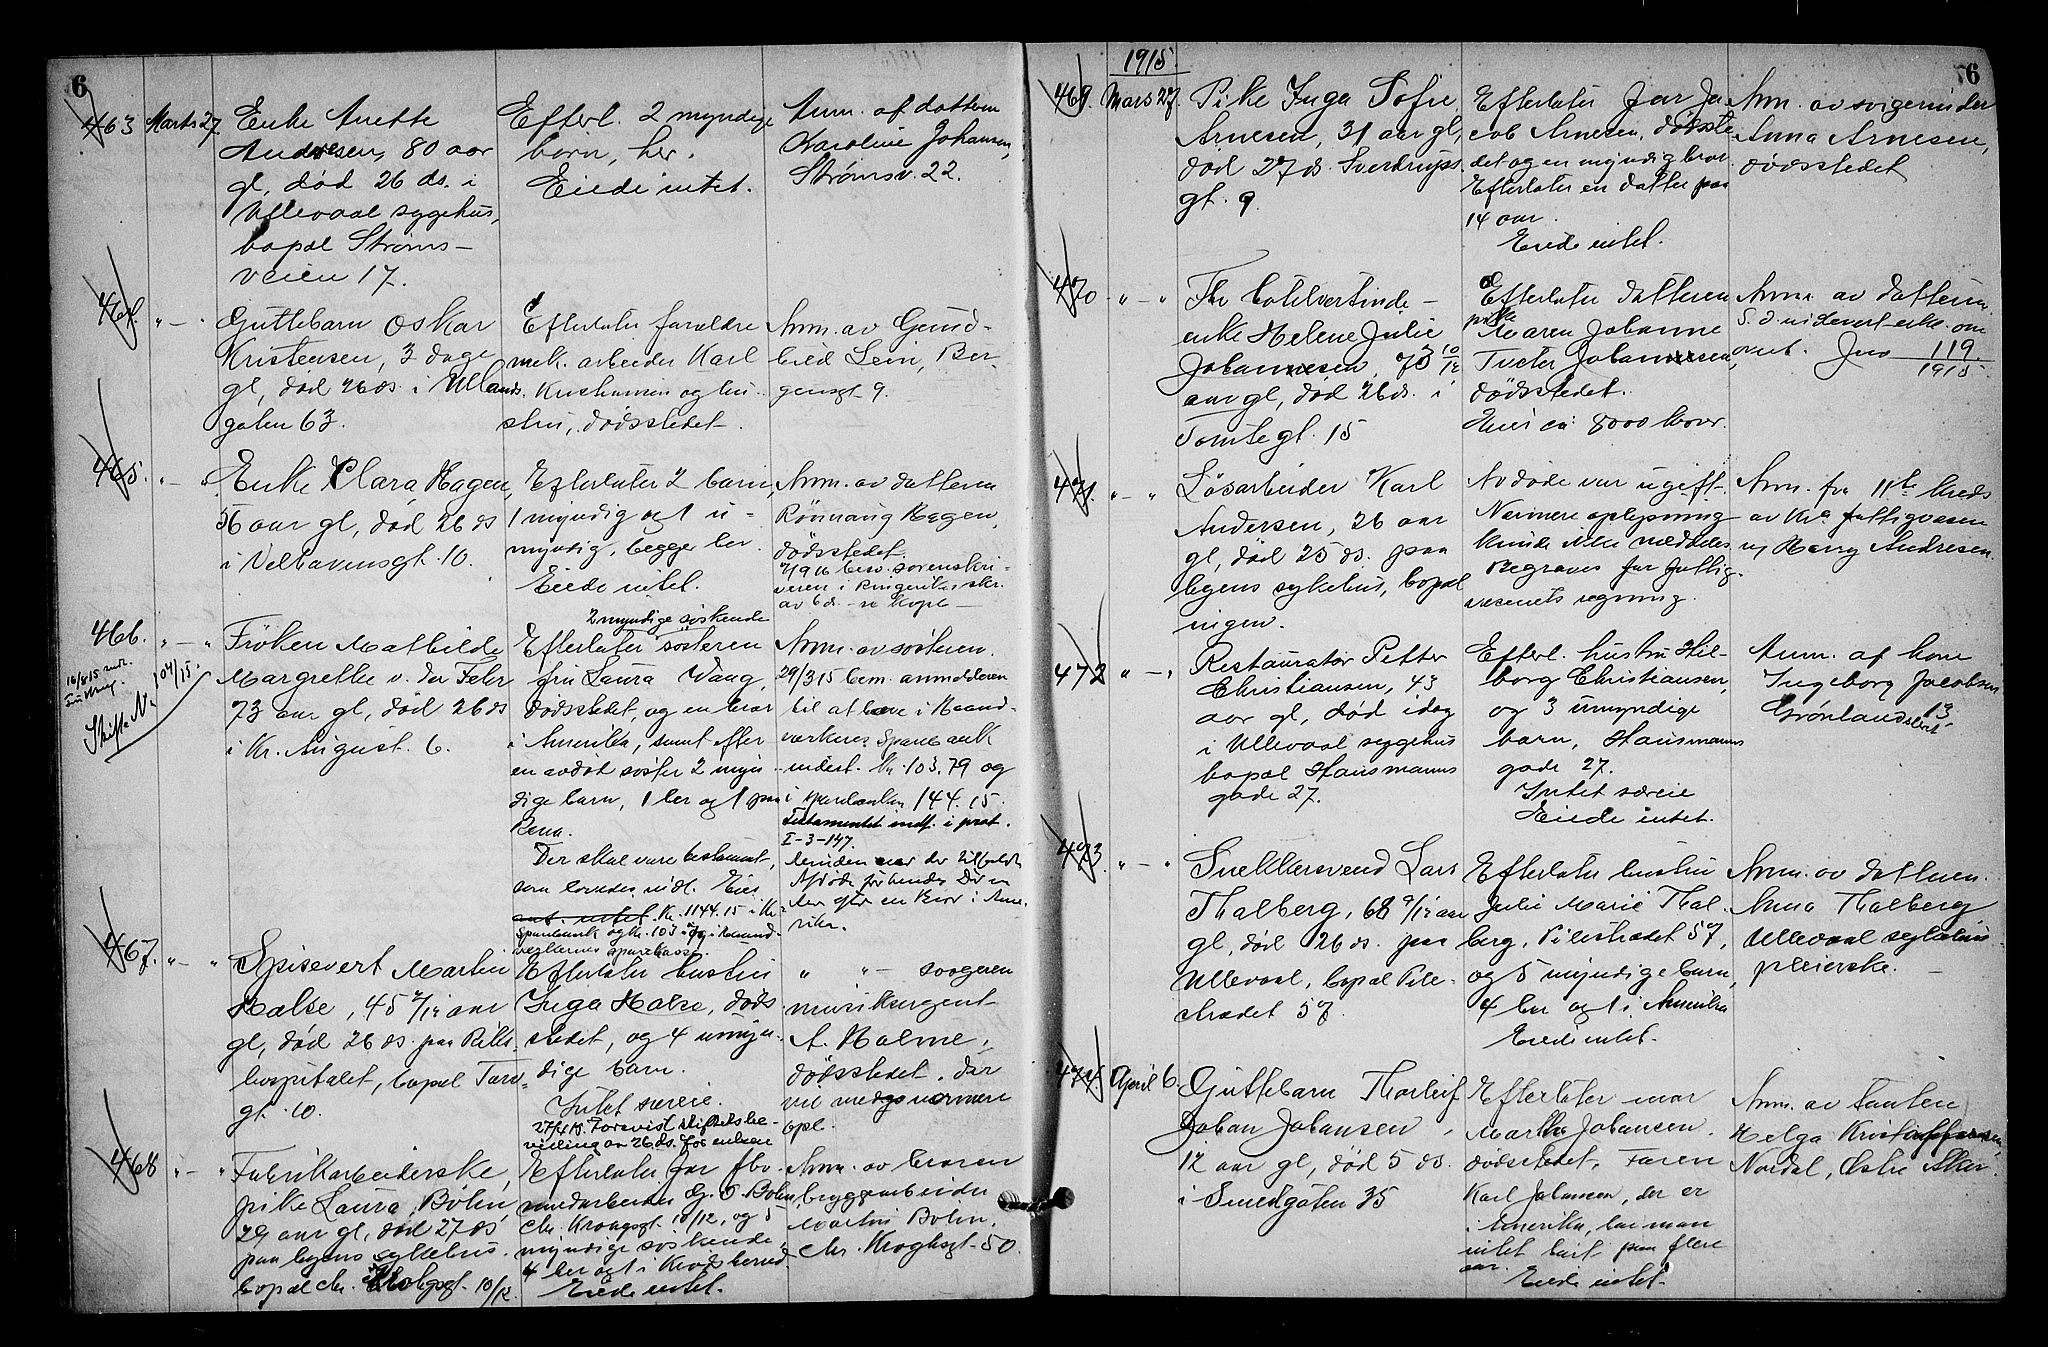 6
463 Marts 27.
Enke Anette
Andresen, 80 aar
gl, død 26 ds. i
Ullevaal sygehus,
bopæl Strøms-
veien 17.
Efterl. 2 myndige
børn, her.
Eiede intet.
Anm. af datteren
Karoline Johansen,
Strømsv. 22.
464. " — "
Guttebarn Oskar
Kristensen, 3 dage
gl, død 26 ds. i Ullevaals
gaten 63.
Efterlater forældre
mek. arbeider Karl
Kristensen og hu-
stru, dødsstedet.
Anm. av Gund-
hild Lein, Ber-
gensgt 9.
465. " — "
Enke Clara Hagen,
56 aar gl, død 26 ds
i Velhavensgt. 10.
Efterlater 2 barn,
1 myndig og 1 u-
myndig, begge her.
Eiede intet.
Anm. av datteren
Rönnaug Hagen,
dødsstedet.
sorenskri-
veren i Ringerike skr.
av 6 ds.
466. " — "
Skifte No 104/15.
Fröken Mathilde
Margrethe v. der Fehr
73 aar gl, død 26 ds
i Kr. August. 6.
2 myndige søskende
Efterlater søsteren
fru Laura Wang,
dødsstedet, og en bror
i Amerika, samt efter
en avdød søster 2 myn-
dige barn, 1 her og 1 paa
Rena.
Der skal være testament,
som loredes indl. Eies
ant. intet. Kr. 1144.15 i Kr
Sparebank og Kr. 103.79 i Haand-
verkernes sparekasse.
Anm. av søsteren.
29/3 15 bem. anmelderen
til at have i Haand-
værkeres Sparebank
indest. Kr. 103.79 og
i sparebanken 144.15.
Testamentet indf. i prot.
I-3-147.
467. " — "
Spisevert Martin
Halse, 45 aar
gl, død 26 ds. paa Riks-
hospitalet, bopæl Torv-
gt. 10.
Efterlater hustru
Inga Halse, døds-
stedet, og 4 umyn-
dige barn.
Intet særeie.
27/4 15. Forevist skifterets be-
villing av 26 ds. for enken
" " — svogeren
musiksergent
A. Holme,
dødsstedet, der
vil medgi nærmere
opl.
468 " — "
Fabrikarbeiderske,
pike Laura Bolin
29 aar gl, død 27 ds
paa byens sykehus.
bopæl Chr. Krohgsgt. 10/12.
Efterlater far
G. O. Bolin,
Chr. Krohgsgt. 10/12, og 5
myndige søskende,
4 her og 1 i Krødsherred.
Eiede intet.
Anm. av broren
bryggearbeider
Martin Bolin,
Chr. Kroghsgt. 50.
1915.
6
469. Mars 27.
Pike Inga Sofie
Arnesen, 31 aar gl,
død 27 ds. Sverdrups
gt. 9.
Efterlater far Ja-
cob Arnesen, dødsste-
det og en myndig bror.
Efterlater en datter paa
14 aar.
Eiede intet.
Anm. av svigerinden
Anna Arnesen,
dødsstedet
470 " — "
Fhv hotelvertinde-
enke Helene Julie
Johannesen, 73 10/12
aar gl, død 26 ds. i
Tomtegt. 15
Efterlater datteren
pike
Maren Johanne
Johannesen,
dødsstedet.
Eier ca: 8000 kroner.
Anm. av datteren.
119.
1915.
471. " — "
Løsarbeider Karl
Andersen, 26 aar
gl, død 25 ds. paa
byens sykehus, bopæl
ingen.
Avdøde var ugift.
Nærmere oplysning
kunde ikke meddeles
Begraves for fattig-
væsenets regning.
Anm. fra 11te kreds
av Kra fattigvæsen
v/ Harry Andresen.
472 " — "
Restauratør Petter
Christiansen, 43
aar gl, død idag
i Ullevaal sygehus
bopæl Hausmanns
gade 27.
Efterl. hustru Hil-
borg Christiansen,
og 3 umyndige
børn, Hausmanns
gade 27.
Intet særeie
Eiede intet.
Anm. af kone
Ingeborg Jacobsen
Grønlandsleret 13.
473. " — "
Snekkersvend Lars
Thalberg, 68 9/12 aar
gl, død 26 ds. paa
Ullevaal, bopæl Pile-
strædet 57.
Efterlater hustru
Julie Marie Thal-
berg, Pilestrædet 57,
og 5 myndige barn,
4 her og 1 i Amerika
Eiede intet.
Anm. av datteren.
Anna Thalberg,
Ullevaal sykehus
pleierske.
474. April 6.
Guttebarn Thorleif
Johan Johansen,
12 aar gl, død 5 ds.
i Smedgaten 35
Efterlater mor
Martha Johansen,
dødsstedet. Faren
Karl Johansen, der er
i Amerika, har man
intet hørt paa flere
aar.
Eiede intet.
Anm. av tanten
Helga Kristoffersen,
Nordal, Østre Aker.